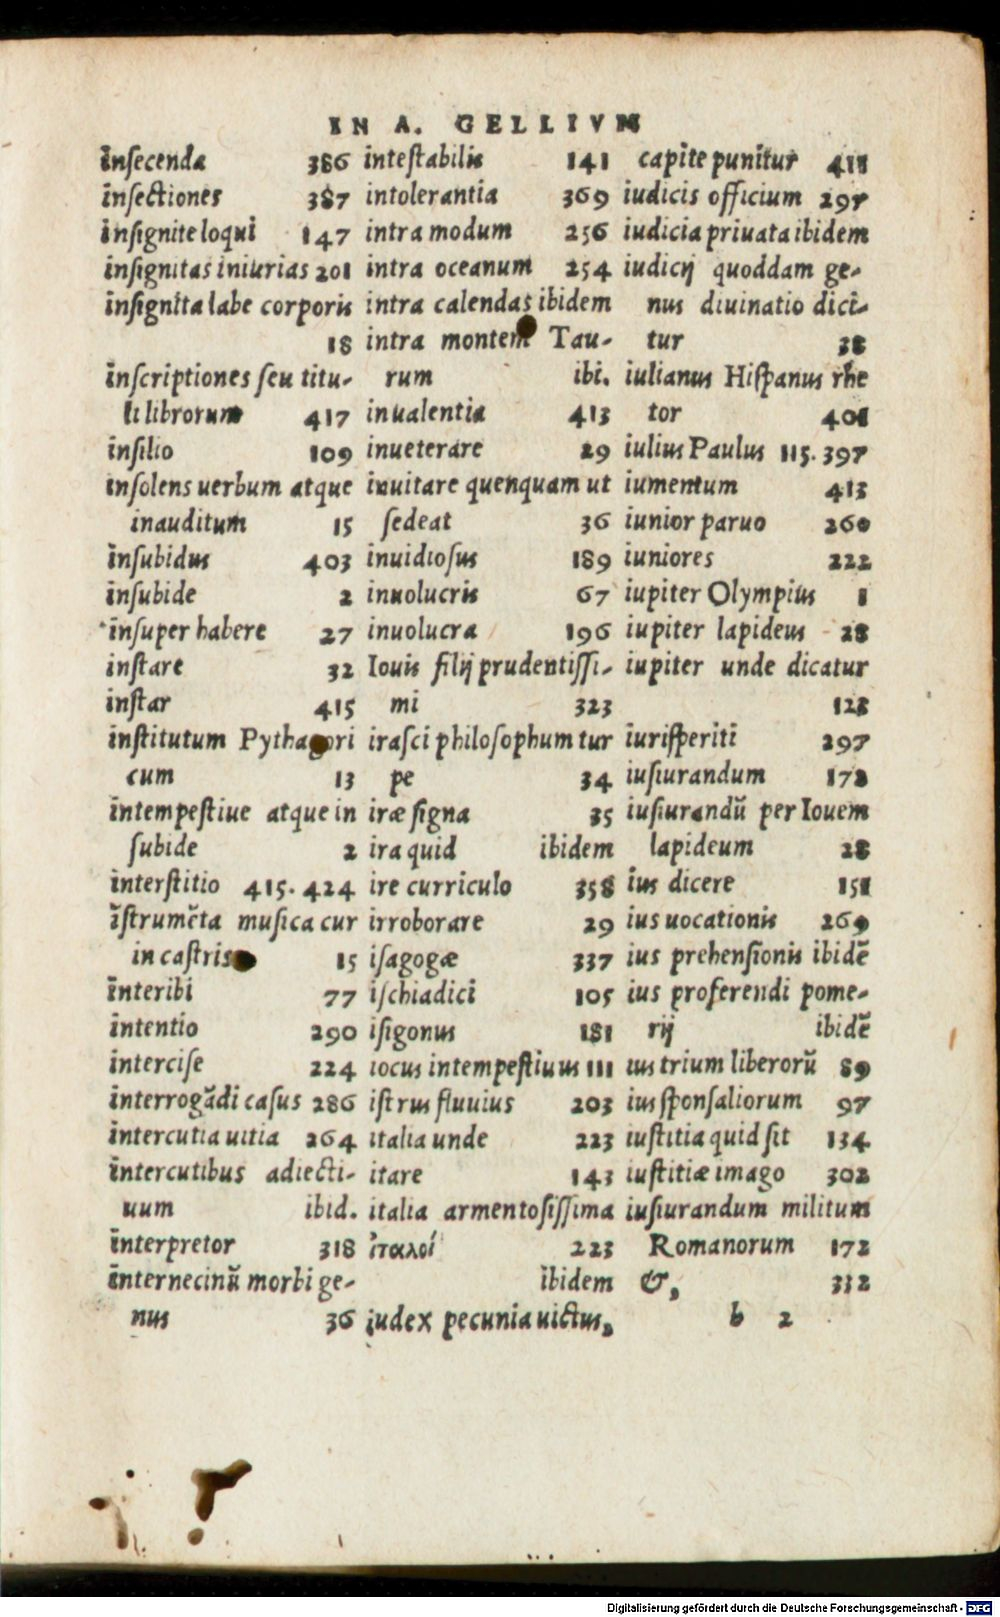 IN A. GELLIVM
insecenda 386
insectiones 387
insignite loqui 147
insignitas iniurias 201
insignita labe corporis
18
inscriptiones seu titu-
li librorum 417
insilio 109
insolens uerbum atque
inauditum 15
insubidus 403
insubide 2
insuper habere 27
instare 32
instar 415
institutum Pythagori
cum 13
intempestiue atque in
subide 2
interstitio 415. 424
ĩstrumẽta musica cur
in castris 15
interibi 77
intentio 290
intercise 224
interrogãdi casus 286
intercutia uitia 264
intercutibus adiecti-
uum ibid.
interpretor 318
internecinũ morbi ge-
nus 36
intestabilis 141
intolerantia 369
intra modum 256
intra oceanum 254
intra calendas ibidem
intra montem Tau-
rum ibi.
inualentia 413
inueterare 29
inuitare quenquam ut
sedeat 36
inuidiosus 189
inuolucris 67
inuolucra 196
Iouis filij prudentissi-
mi 323
irasci philosophum tur
pe 34
iræ signa 35
ira quid ibidem
ire curriculo 358
irroborare 29
isagogæ 337
ischiadici 105
isigonus 181
iocus intempestiuus 111
istrus fluuius 203
italia unde 223
itare 143
italia armentosissima
ἰταλοί 223
ibidem
iudex pecunia uictus,
capite punitur 411
iudicis officium 297
iudicia priuata ibidem
iudicij quoddam ge-
nus diuinatio dici-
tur 38
iulianus Hispanus rhe
tor 401
iulius Paulus 115. 397
iumentum 413
iunior paruo 260
iuniores 222
iupiter Olympius 1
iupiter lapideus 28
iupiter unde dicatur
128
iurisperiti 297
iusiurandum 172
iusiurandũ per Iouem
lapideum 28
ius dicere 151
ius uocationis 269
ius prehensionis ibidẽ
ius proferendi pome-
rij ibidẽ
ius trium liberorũ 89
ius sponsaliorum 97
iustitia quid sit 134
iustitiæ imago 302
iusiurandum militum
Romanorum 172
&, 332
b 2
Digitalisierung gefördert durch die Deutsche Forschungsgemeinschaft - DFG